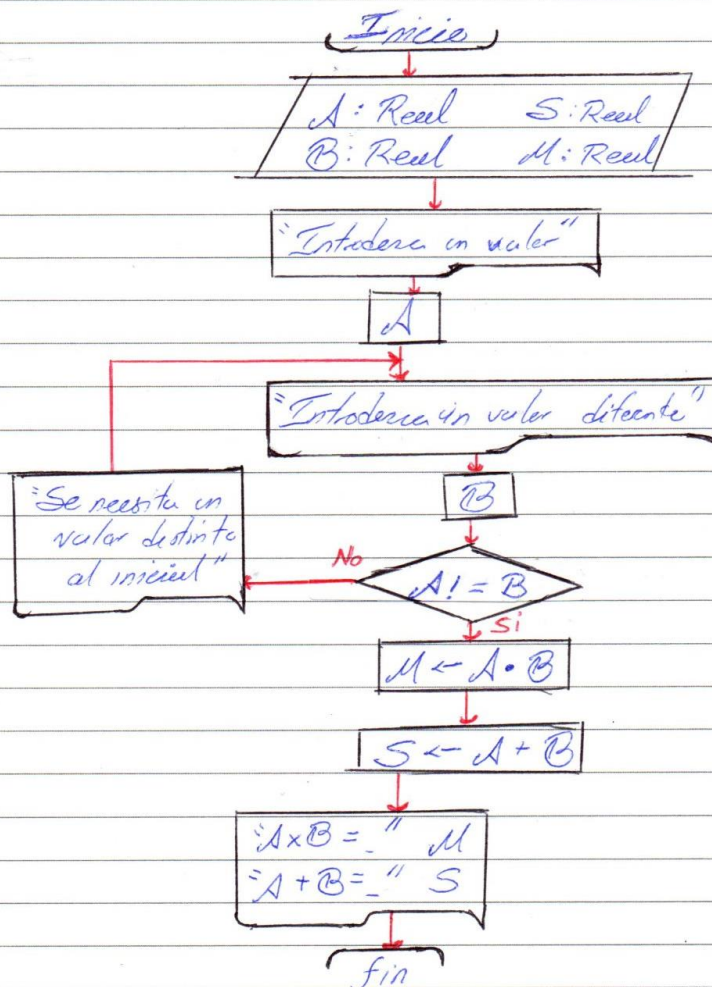 Inicio
A: Real S: Real
B: Real M: Real
"Introdezca un valor"
A
"Introdezca un valor difeente"
B
"Se necesita un
valor distinto
al inicial"
No
A! = B
Si
M ← A • B
S ← A + B
"A x B = _" M
"A + B = _" S
fin